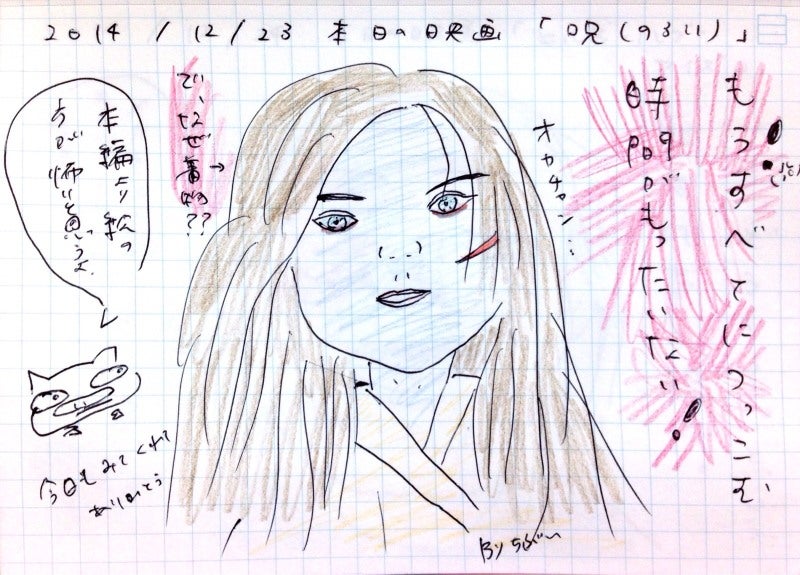 2014/12/23 本日の映画「呪(のろい)」
もうすべてにつっこむ
時間がもったいない!
オカチャン…
で、なぜ着物??→
本編より絵の
方が怖いと思うよ
今日もみてくれて
ありがとう
By